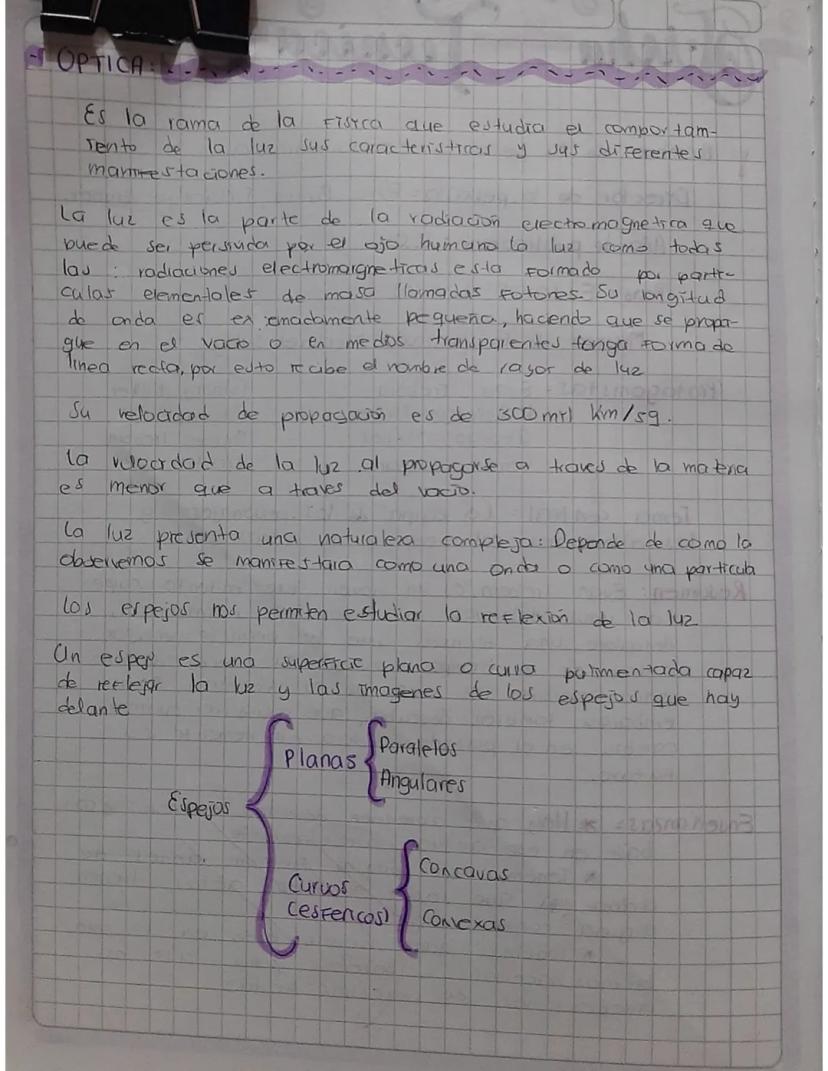 OPTICA:
Es la rama de la Fisica que estudia el comportam-
iento de la luz sus caracteristicas y sus diferentes
manifestaciones.
La luz es la parte de la radiación electromagnetica que
puede ser persiuda por el ojo humano la luz como todas
las : radiaciones electromargneticas esta Formado por parti-
culas elementales de masa llamadas Fotones. Su longitud
de onda es ex emadamente pequeña, haciendo que se propa-
gue en el vacio o en medios transparentes tenga Forma de
linea recta, por esto recibe el nombre de rasor de luz
Su velocidad de propagación es de 300 mil Km/sg.
La velocidad de la luz al propagarse a traves de la materia
es menor que a traves del vacio.
La luz presenta una naturaleza compleja: Depende de como la
observemos se maniFestara como una onda o como una particula
Los espejos nos permiten estudiar la reFlexión de la luz
Un espejo es una superFicie plana o curva pulimentada capaz
de reFlejar la luz y las imagenes de los espejos que hay
delante
Espejos
Planas
Paralelos
Angulares
Curvos
(esFericos)
Concavas
Convexas